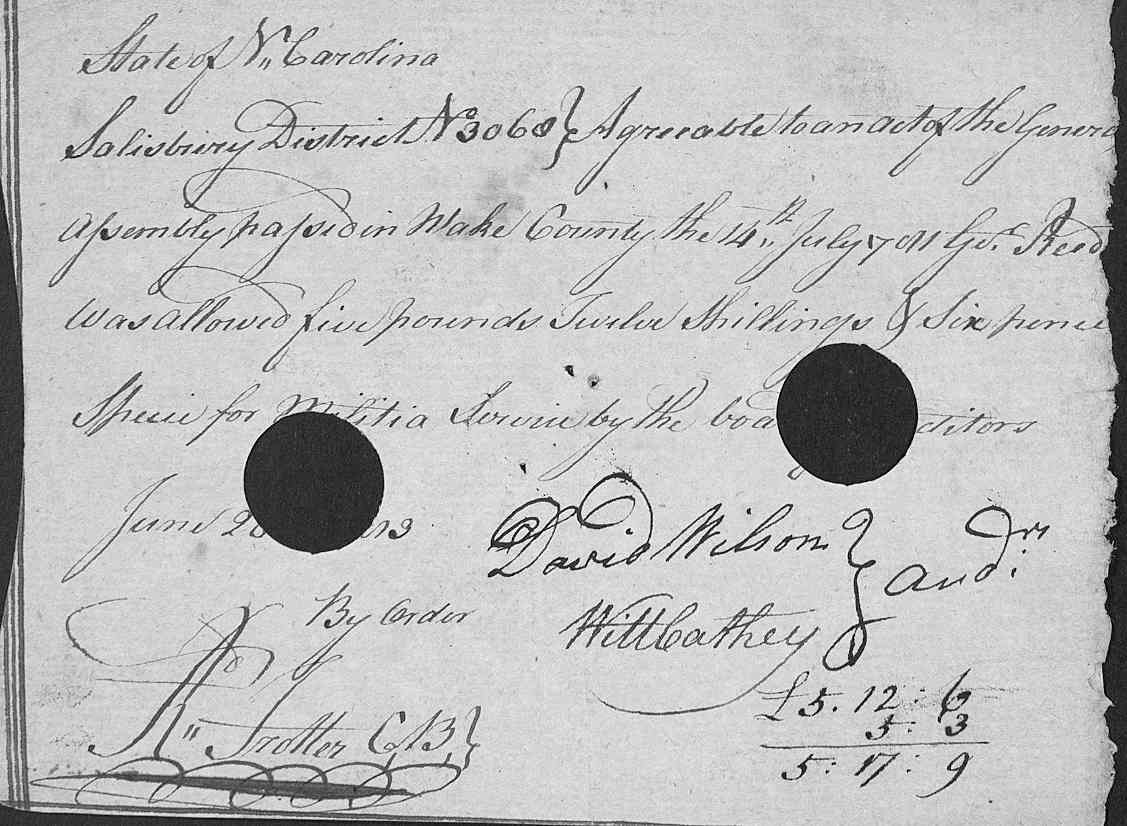 State of N,, Carolina
Salisbury District No 3068 } Agreeable to an act of the Genera
assembly passed in Wake County the 14,,th July 1781 Geo. Reed
was allowed five pounds Twelve Shillings & Six pence
Specie for Militia Service by the boa ditors
June 28
By Order David Wilson } Aud.rs
Will Cathey
R" Trotter C,B,}
£ 5. 12 : 6
5 : 3
5 : 17 : 9